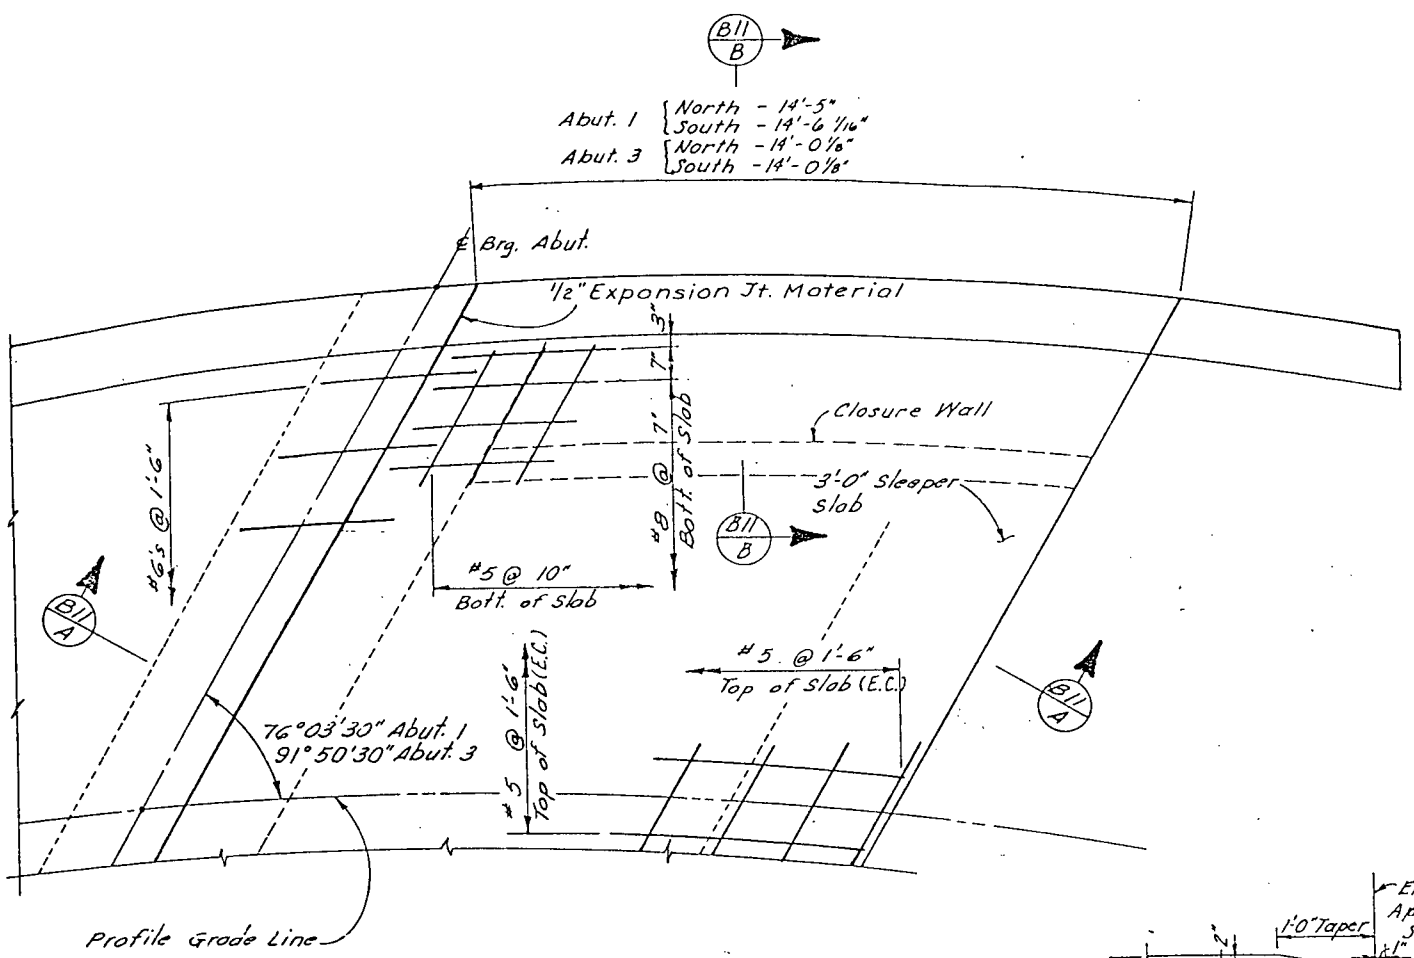 B11
B
Abut. 1 { North - 14'-5"
South - 14'-6 1/16"
Abut. 3 [ North - 14'-0 1/8"
South - 14'-0 1/8"
℄ Brg. Abut.
1/2" Expansion Jt. Material
3"
7"
#8 @ 7"
Bott. of Slab
Closure Wall
3'-0" Sleeper
Slab
#6's @ 1'-6"
B11
B
#5 @ 10"
Bott. of Slab
B11
A
#5 @ 1'-6"
Top of Slab (E.C.)
#5 @ 1'-6"
Top of Slab (E.C.)
B11
A
76°03'30" Abut. 1
91°50'30" Abut. 3
Profile Grade Line
1'-0" Taper
2"
1"